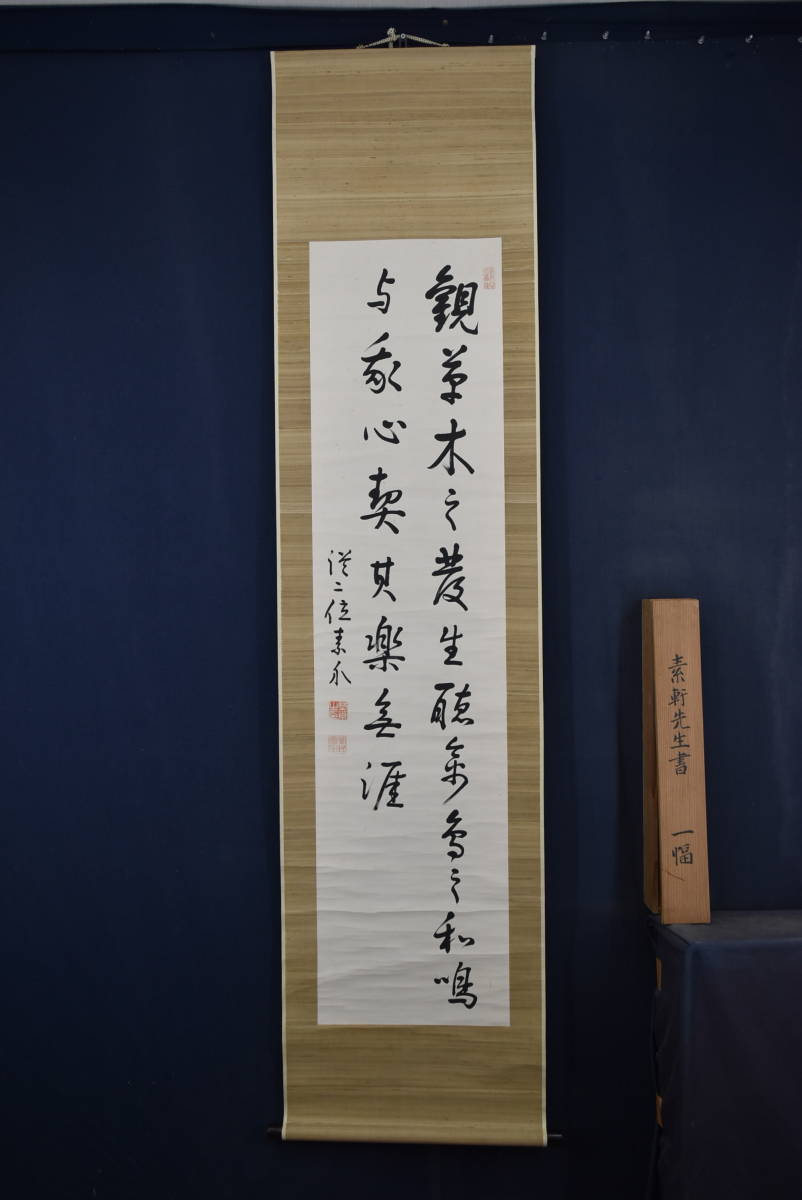 觀草木之發生聴衆鳥之和鳴
与我心契其樂無涯
従二位素
素軒先生書 一幅